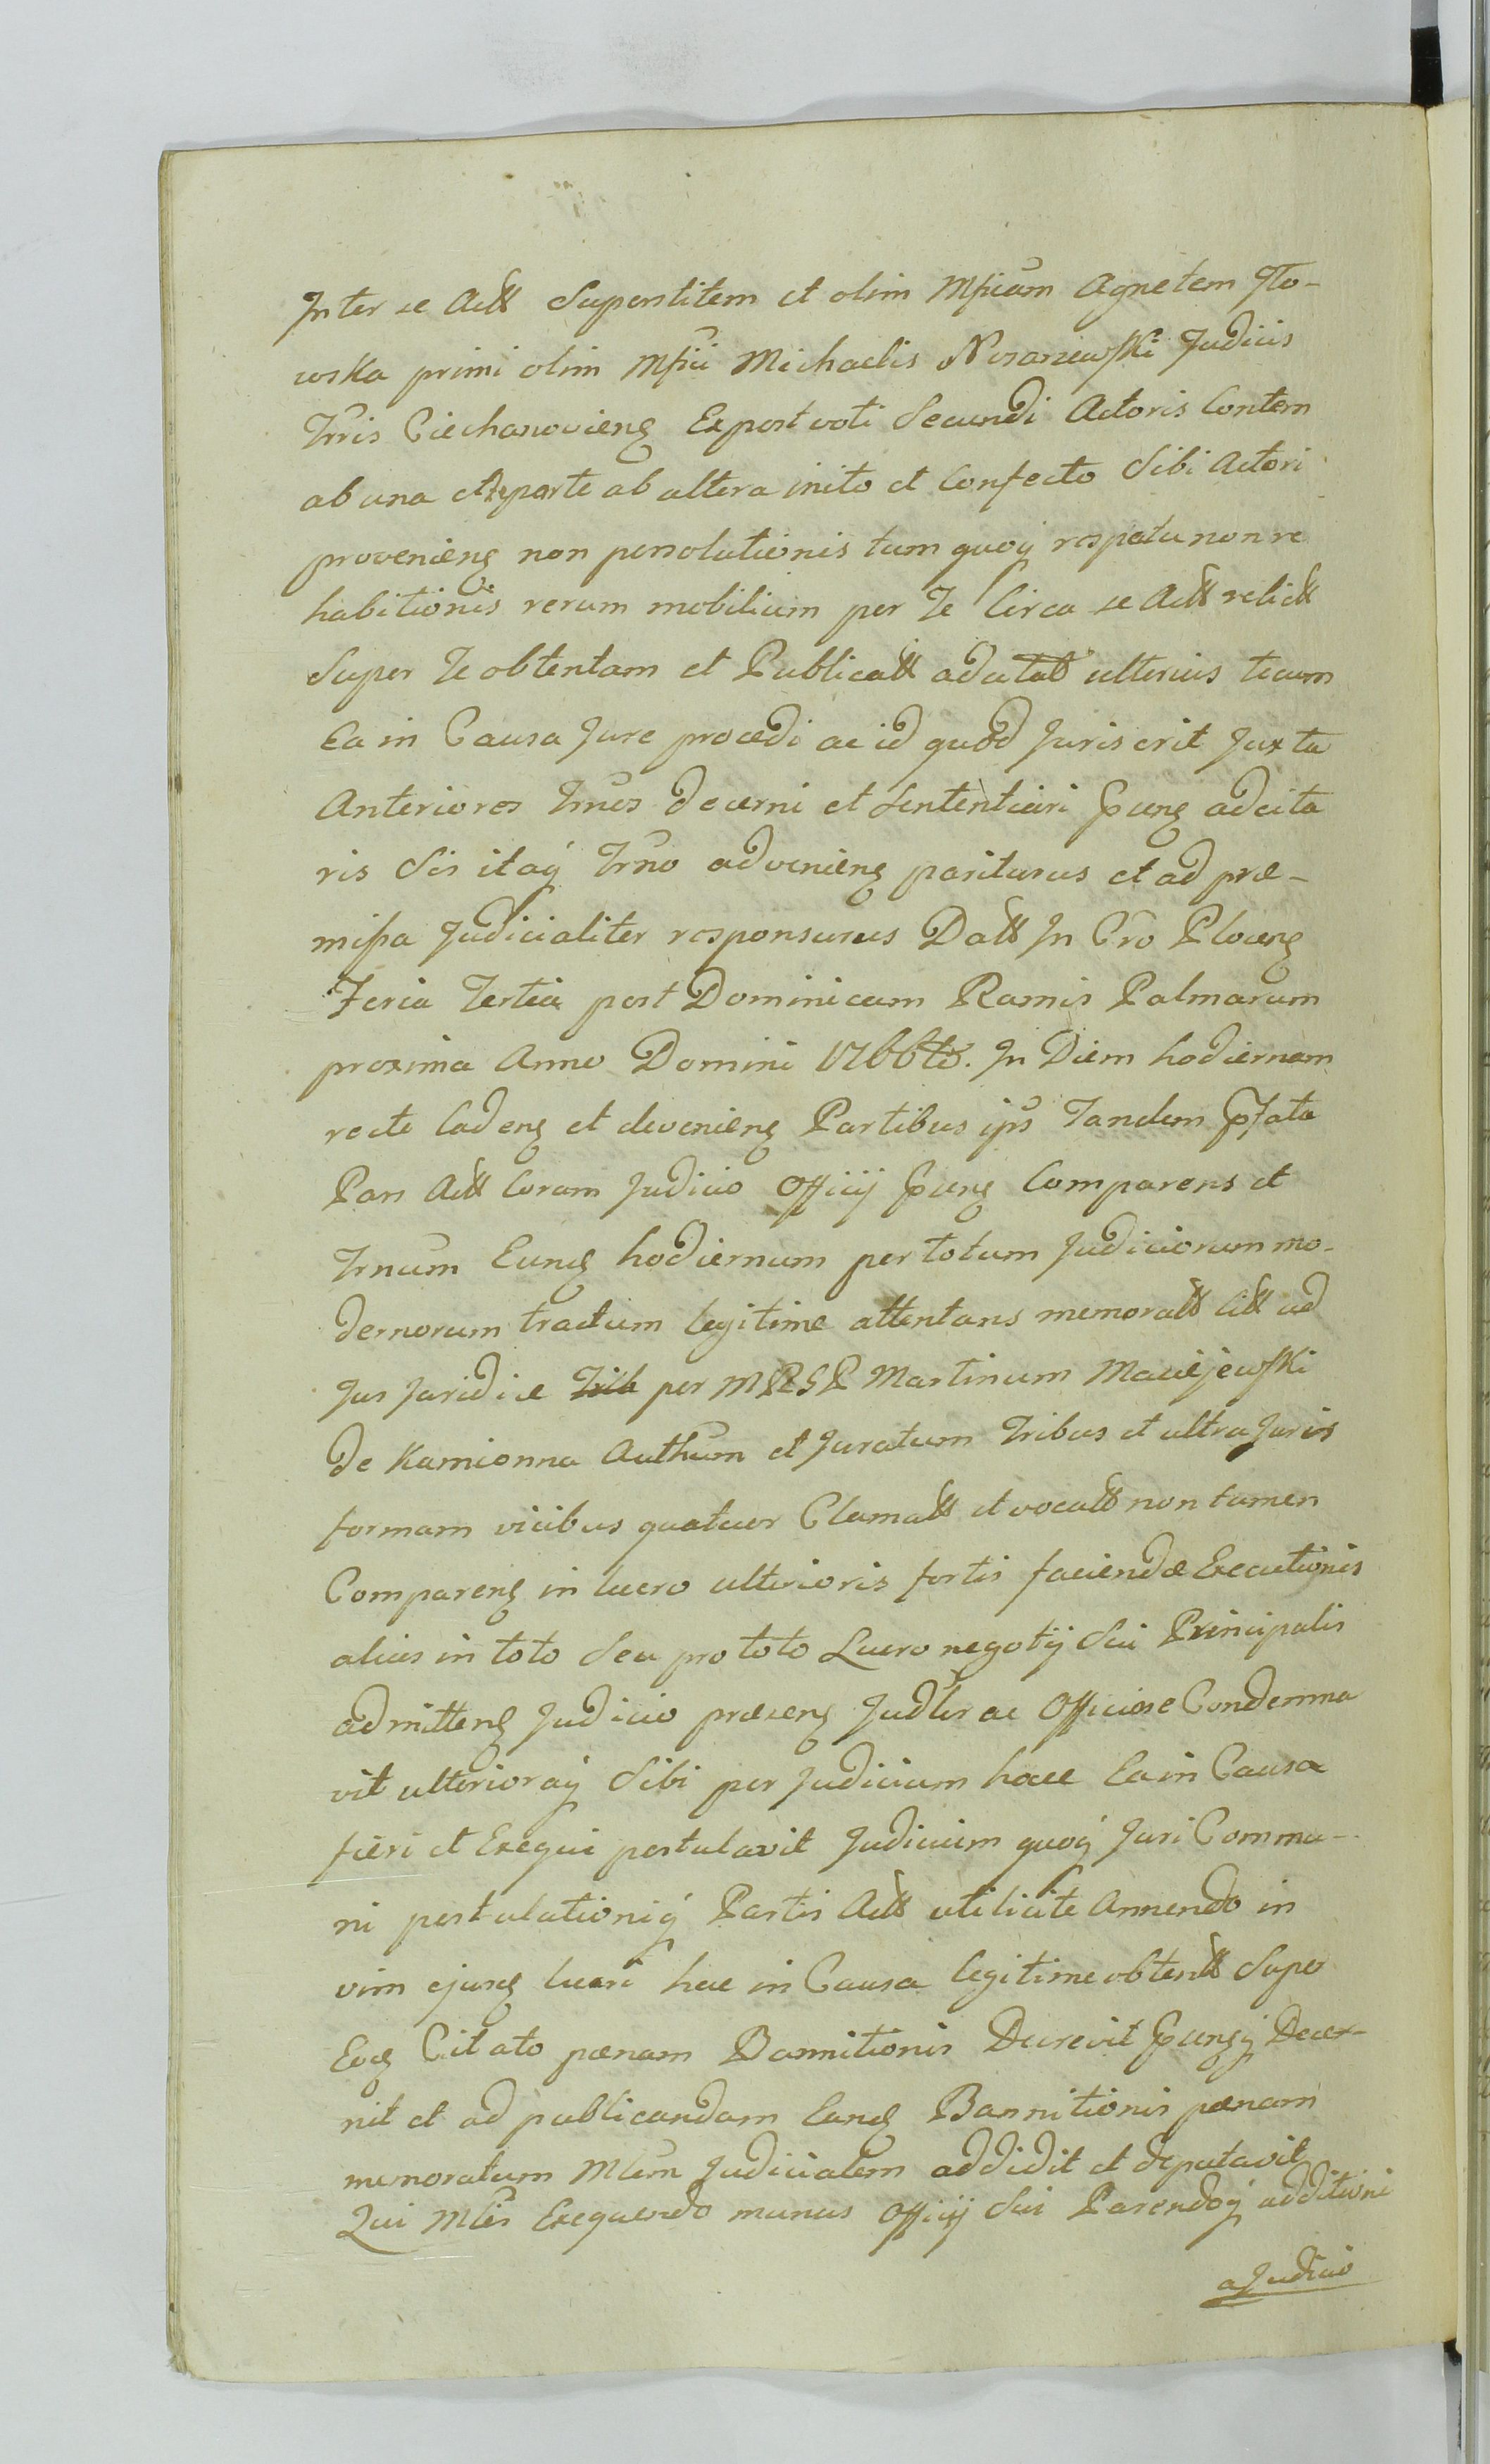 Inter se Actt Superstitem et olim Mficam Agnetem Ito-
wska primi olim Mfici Michaelis Nosarzewski Judicis
Trris Ciechanoviens Expost voti Secundi Actoris Contem
ab una et te parte ab altera inito et Confecto Sibi Actori
proveniens non persolutionis tum quoq respectu non re
habitionis rerum mobilium per Te Circa se Actt relictt
Super Te obtentam et Publicatt ulterius tecum
Ea in Causa Jure procedi ac id quod Juris erit Juxta
Anteriores Trnos decerni et Sententiari Pñs adcita
ris Sis itaq Trno adveniens pariturus et ad præ-
missa Judicialiter responsurus Datt In Cro Plocens
Feria Tertia post Dominicam Ramis Palmarum
proxima Anno Domini 1766to. In Diem hodiernam
recte Cadens et deveniens Partibus ijs Tandem Pfata
Pars Actt Coram Judicio Officij Pñs Comparens et
Trnum Eund hodiernum per totum Judiciorum mo-
dernorum tractum legitime attentans memoratt Citt ad
Jus Juridice per M R S P Martinum Maciejewski
de Kamionna Authum et Juratum Tribus et ultra Juris
formam vicibus quatuor Clamatt et vocatt non tamen
Comparens in lucro ulterioris fortis faciendæ Executionis
alias in toto Seu pro toto Lucro negotij Sui Principalis
admittens Judicio præsens Judlr ac Officiose Condemna
vit ulterioraq Sibi per Judicium hocce Ea in Causa
fieri et Exequi postulavit Judicium quoq Juri Commu-
ni postulationiq Partis Actt utilicite Annendo in
vim ejusd lucri hac in Causa legitime obtentt Super
Eod Citato pænam Bannitionis Decrevit Pñsq Decer-
nit et ad publicandam Eand Bannitionis pænam
memoratum Mlem Judicialem addidit et deputavit
Qui Mles Exequendo munus Officij Sui Parendoq additioni
a Judicio